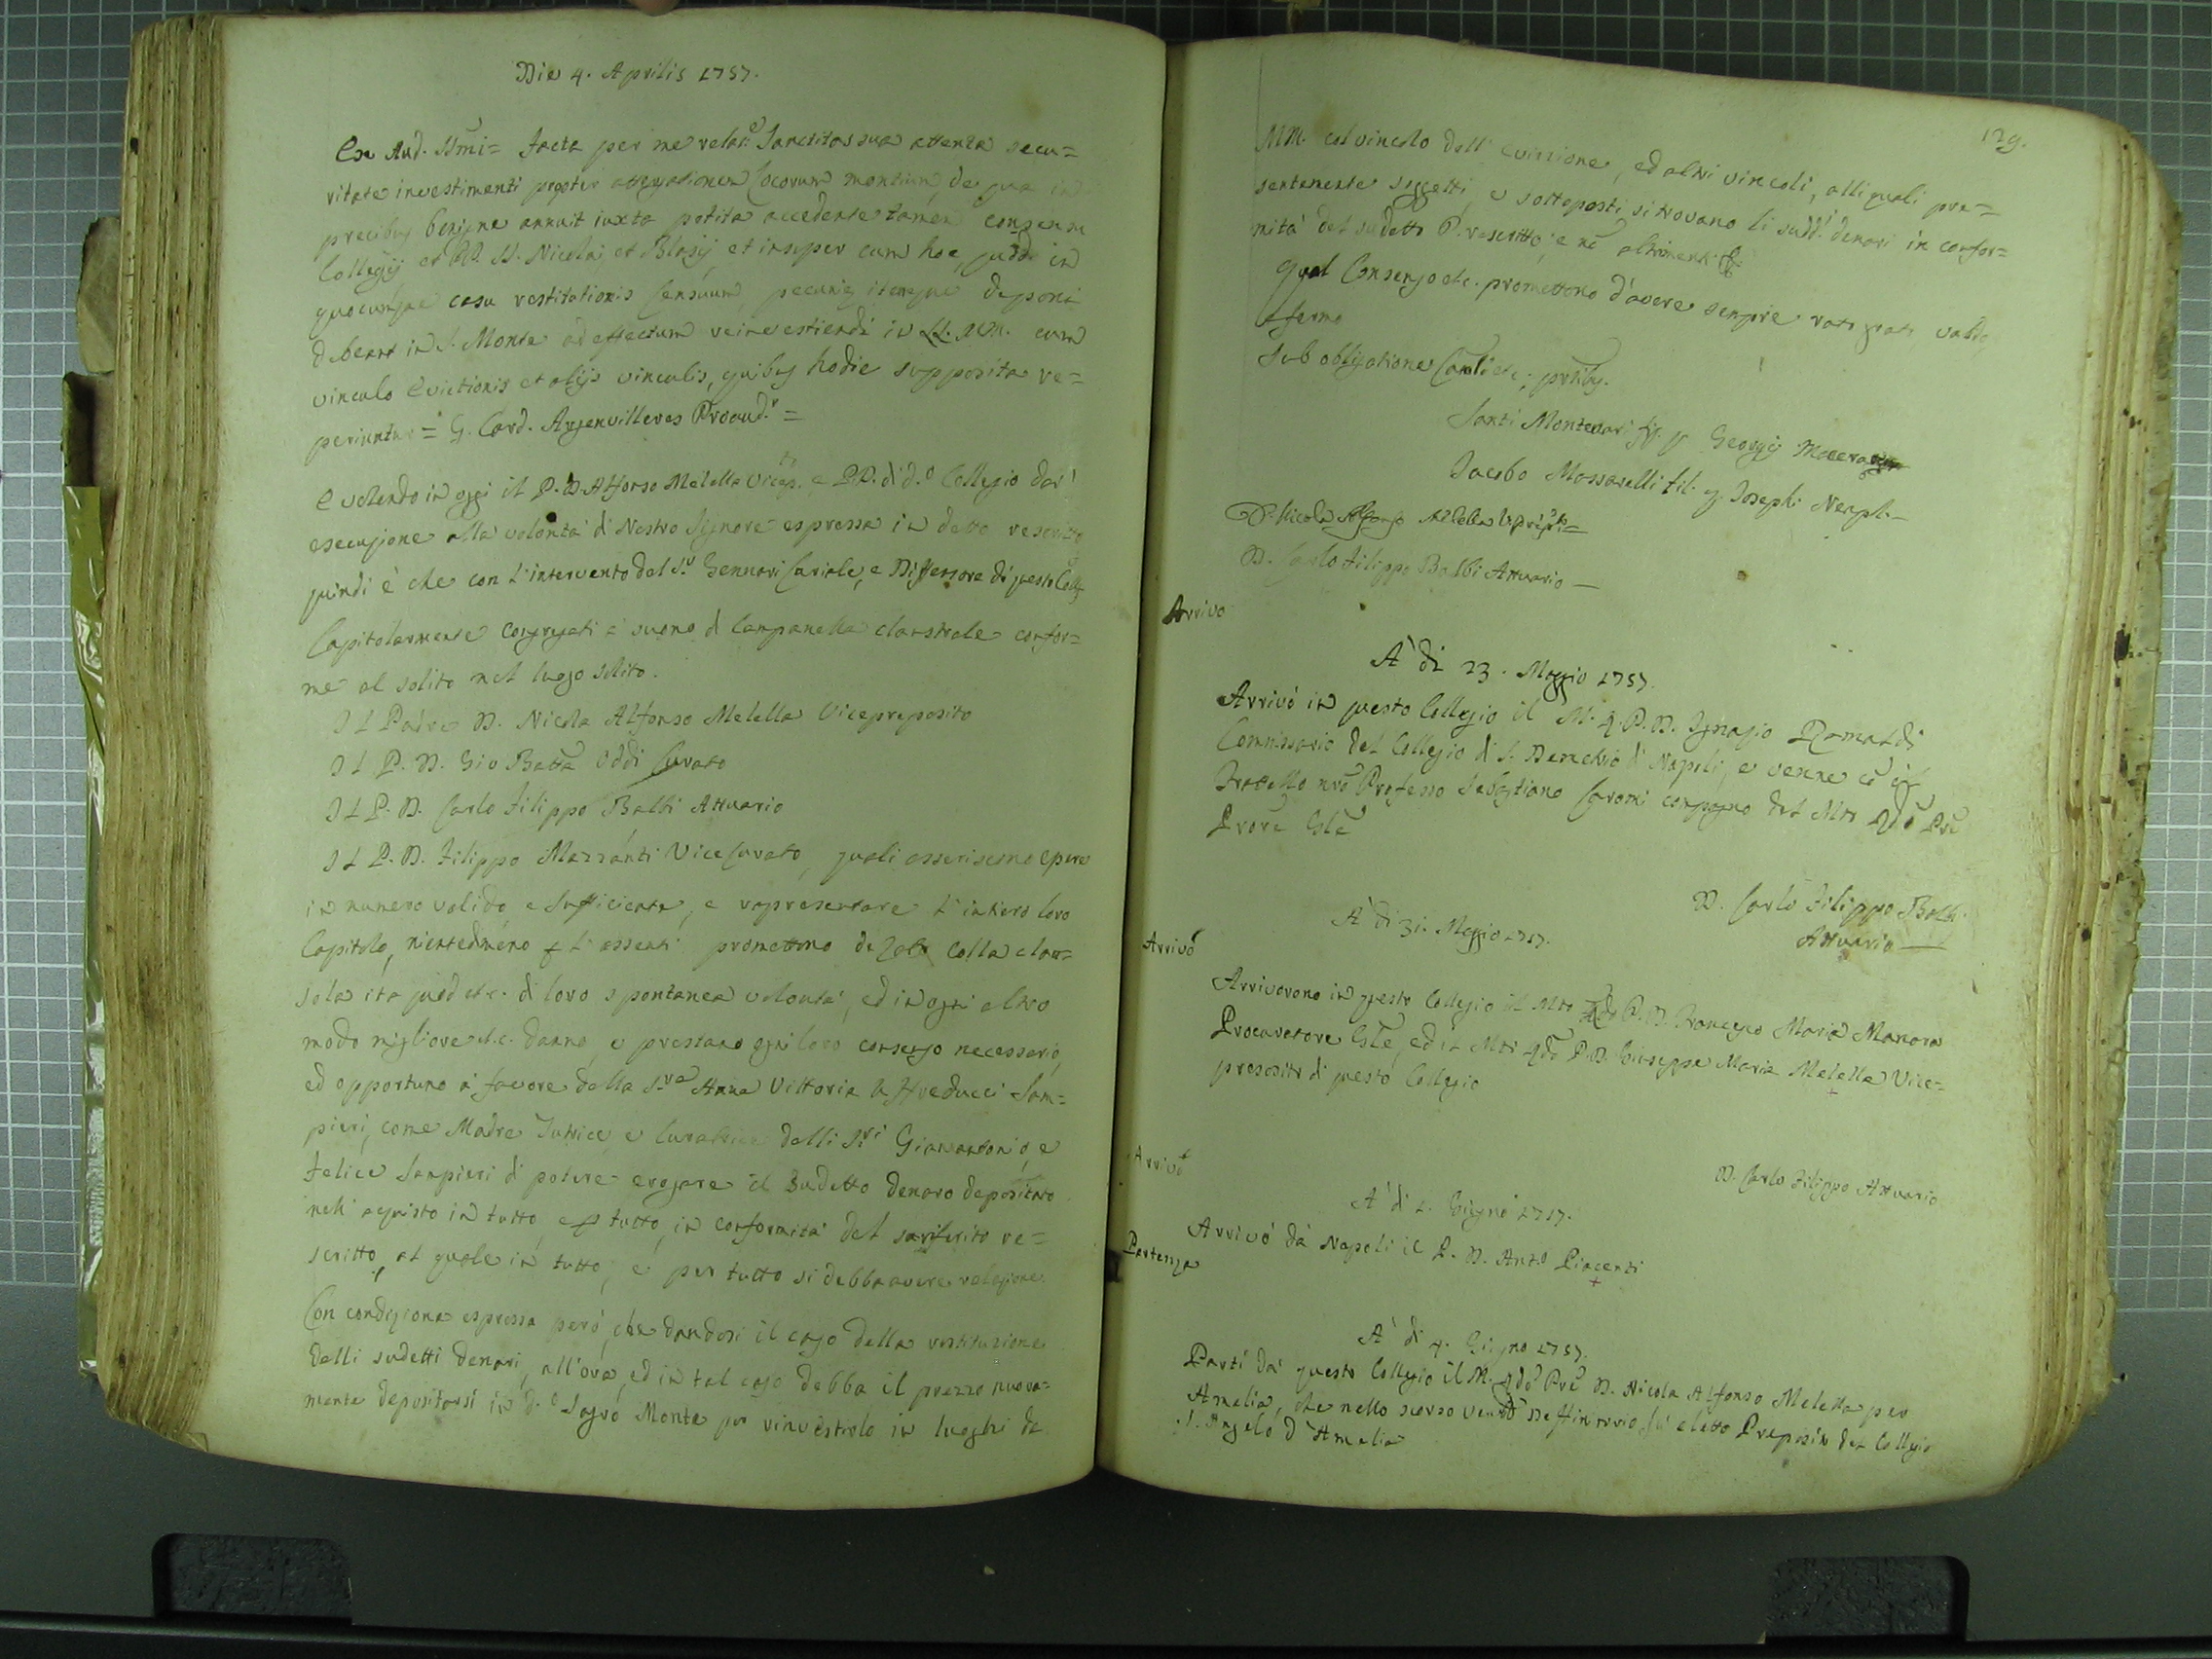 Die 4. Aprilis 1757.
Ex Aud. SSmi = Facta per me relat.e Sanctitas sua attenta secu=
ritate investimenti propter assegnationem Locorum montium, de qua in
precibus benigne annuit iuxta petita accedente tamen consensu
Collegij et PP. SS. Nicolai et Blasij et insuper cum hoc, quod in
quocunque casu restitutionis Censuum, pecunię itemque deponi
debeant in S. Monte ad effectum reinvestiendi in LL. MM. cum
vinculo Evictionis et alijs vinculis, quibus hodie supposita re=
periuntur = G. Card. Argenvilleres Proaud.r =
E volendo in oggi il P. D. Alfonso Melella Vicep.to e PP. di d.o Collegio dar'
esecuzione alla volontà di Nostro Signore espressa in detto rescritto
quindi è che con l'intervento del S.r Gennari Cariale, e Diffensore di questo Colle.o
Capitolarmente Congregati à suono di Campanella claustrale confor=
me al solito nel luogo solito.
Il Padre D. Nicola Alfonso Melella Vicepreposito
Il P. D. Gio Batta Oddi Curato
Il P. D. Carlo Filippo Balbi Attuario
Il P. D. Filippo Mazzanti ViceCurato, quali asseriscono essere
in numero valido, e sufficiente, e rapresentare l'intiero loro
Capitolo, nientedmeno p l'assenti promettono de rato colla clau=
sola ita quod etc. di loro spontanea volontà, ed in ogni altro
modo migliore etc. danno, e prestano ogni loro consenso necessario,
ed opportuno à favore della S.ra Anna Vittoria Sam=
pieri, come Madre Tutrice, e Curatrice delli S.ri Gianantonio, e
Felice Sampieri di potere erogare il sudetto denaro depositato
nell' aquisto in tutto, e p tutto, in conformità del sariferito re=
scritto, al quale in tutto, e per tutto si debba avere relazione.
Con condizione espressa però, che dandosi il caso della restituzione
delli sudetti denari, all'ora, ed in tal caso debba il prezzo nuova=
mente depositarsi in d.o Sagro Monte per rinvestirlo in luoghi de
129.
MM. col vincolo dell' evizzione, ed altri vincoli, alli quali pre=
sentemente soggetti, e sottoposti si trovano li sudd.i denari in confor=
mità del sudetto P. rescritto, e nõ altrimenti
Qual Consenso etc. promettono d'avere sempre rato grato valido
e fermo
Sub obligatione etc.
Santi Montenari fil. q Georgij
Jacobo Massarelli fil. q. Josephi Neapl.
D. Nicola Alfonso Melella Vicepreṗto
D. Carlo Filippo Balbi Attuario
Arrivo
A' dì 23. Maggio 1757.
Arrivò in questo Collegio il M. R. P. D. Ignazio Romaldi
Commissario del Collegio di S. Demetrio di Napoli, e venne cõ il
Fratello nrõ Professo Sebastiano Caroni compagno del Mto Rdo Prẽ
Prore Gle
D. Carlo Filippo Balbi
Attuario
Arrivo
A' dì 31. Maggio 1757.
Arrivorono in questo Collegio il Mto Rdo P. D. Francesco Maria Manara
Procuratore Gle, ed il Mto Rdo P. D. Giuseppe Maria Melella Vice=
preposito di questo Collegio
D. Carlo Filippo Attuario
Arrivo
A' dì 1. Giugno 1757.
Arrivò da Napoli il P. D. Ant.o Piacenti
Partenza
A' dì 4. Giugno 1757.
Partì da questo Collegio il M. Rdo Prẽ D. Nicola Alfonso Melella per
Amelia, che nello scorso Venbl. Deffinitorio, fù eletto Preposito del Collegio
S. Angelo d'Amelia